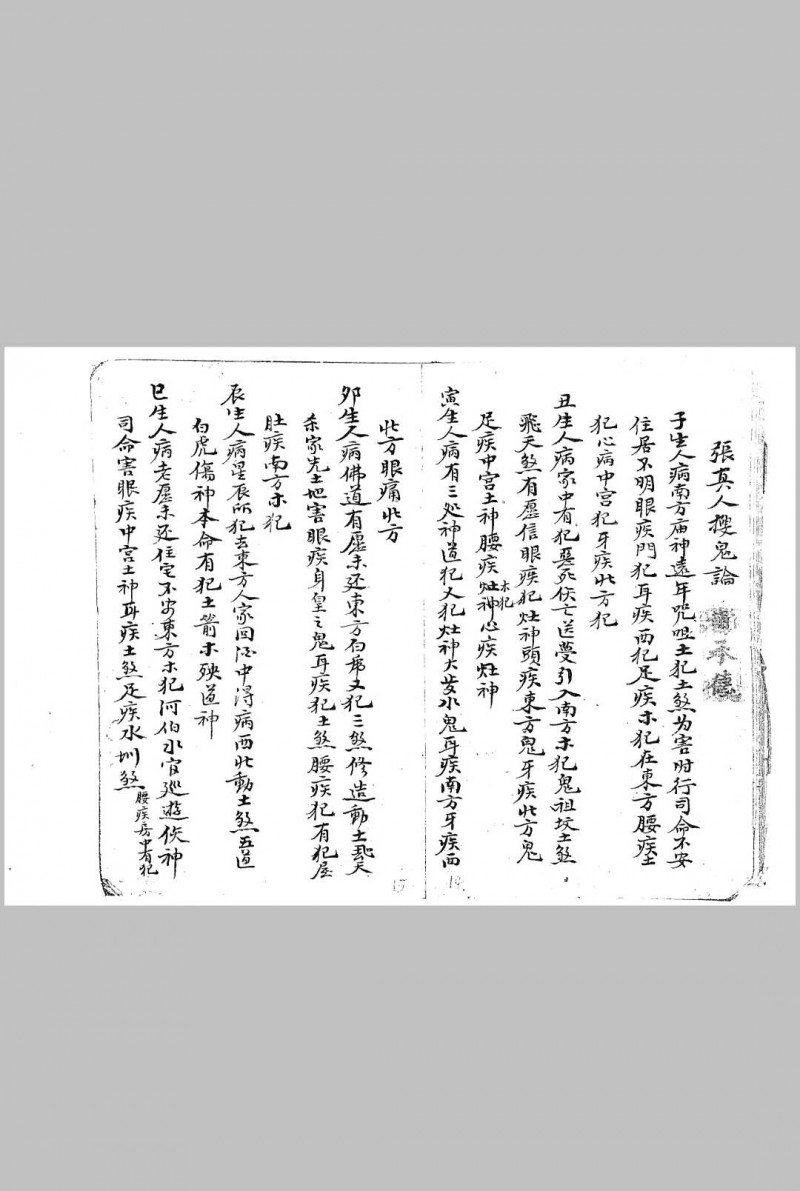 張真人搜鬼論
子生人病南方庙神遠年咒咀土犯土煞为害时行司命不安
住居不明眼疾門犯耳疾西犯足疾木犯在東方腰疾土
犯心病中宫犯牙疾北方犯
丑生人病家中有犯惡死伤亡送夢引入南方木犯鬼祖坟土煞
飛天煞有愿信眼疾犯灶神頭疾東方鬼牙疾北方鬼
足疾中宫土神腰疾灶神心疾灶神
木犯
寅生人病有三处神道犯又犯灶神大发水鬼耳疾南方牙疾西
北方眼痛北方
卯生人病佛道有愿未还東方白虎又犯三煞修造動土飛天
杀家先土地害眼疾身皇之鬼耳疾犯土煞腰疾犯有犯屋
肚疾南方木犯
辰生人病星辰所犯去東方人家回路中得病西北動土煞五道
白虎傷神本命有犯土箭木殃道神
巳生人病老愿未还住宅不安東方木犯河伯水官巡遊伤神
司命害眼疾中宫土神耳疾土煞足疾水圳煞
腰疾房中有犯
15
14